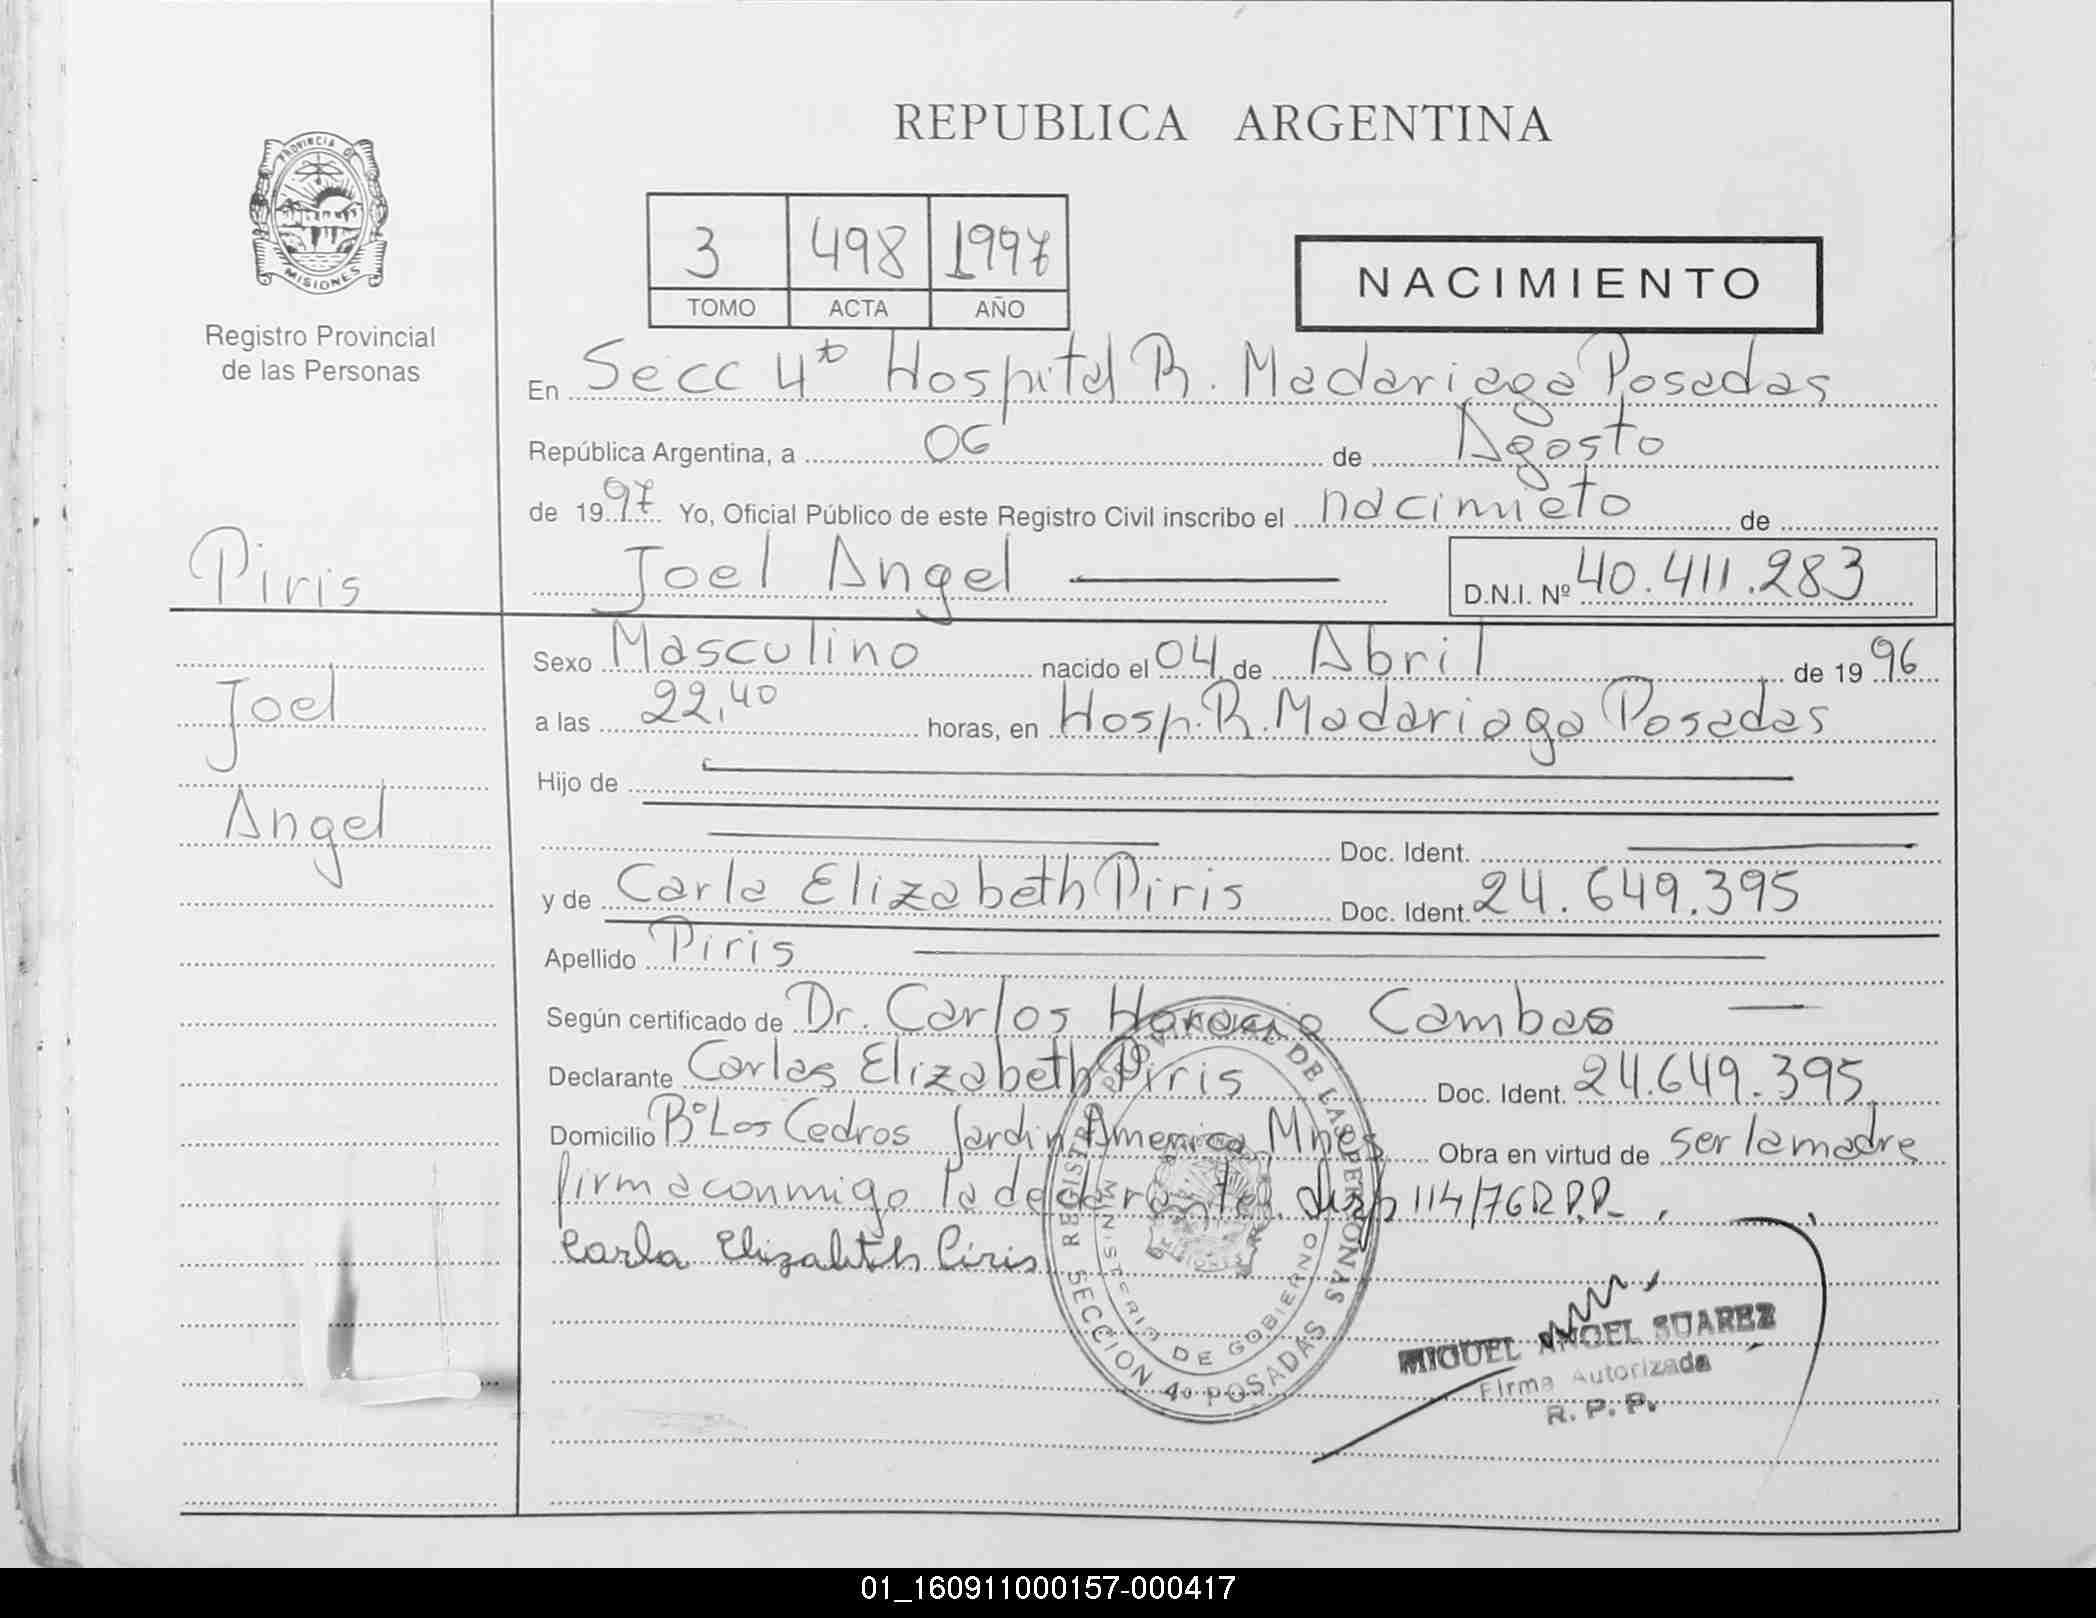 REPUBLICA ARGENTINA
PROVINCIA DE
MISIONES
Registro Provincial
de las Personas
3 498 1997
TOMO ACTA AÑO
NACIMIENTO
En Secc 4ta Hospital R. Madariaga Posadas
República Argentina, a 06 de Agosto
de 1997 Yo, Oficial Público de este Registro Civil inscribo el nacimieto de
Piris
Joel Angel D.N.I. Nº 40.411.283
Joel
Angel
Sexo Masculino nacido el 04 de Abril de 1996
a las 22,40 horas, en Hosp. R. Madariaga Posadas
Hijo de
Doc. Ident.
y de Carla Elizabeth Piris Doc. Ident. 24.649.395
Apellido Piris
Según certificado de Dr. Carlos Horacio Cambas
Declarante Carlas Elizabeth Piris Doc. Ident. 24.649.395
Domicilio Bº Los Cedros Jardin America Mnes Obra en virtud de ser la madre
firma conmigo la declarante. disp 114/76 R.P.P.
Carla Elizabeth Piris
REGISTRO PROVINCIAL DE LAS PERSONAS
SECCION 4º POSADAS
MINISTERIO DE GOBIERNO
MIGUEL ANGEL SUAREZ
Firma Autorizada
R. P. P.
01_160911000157-000417